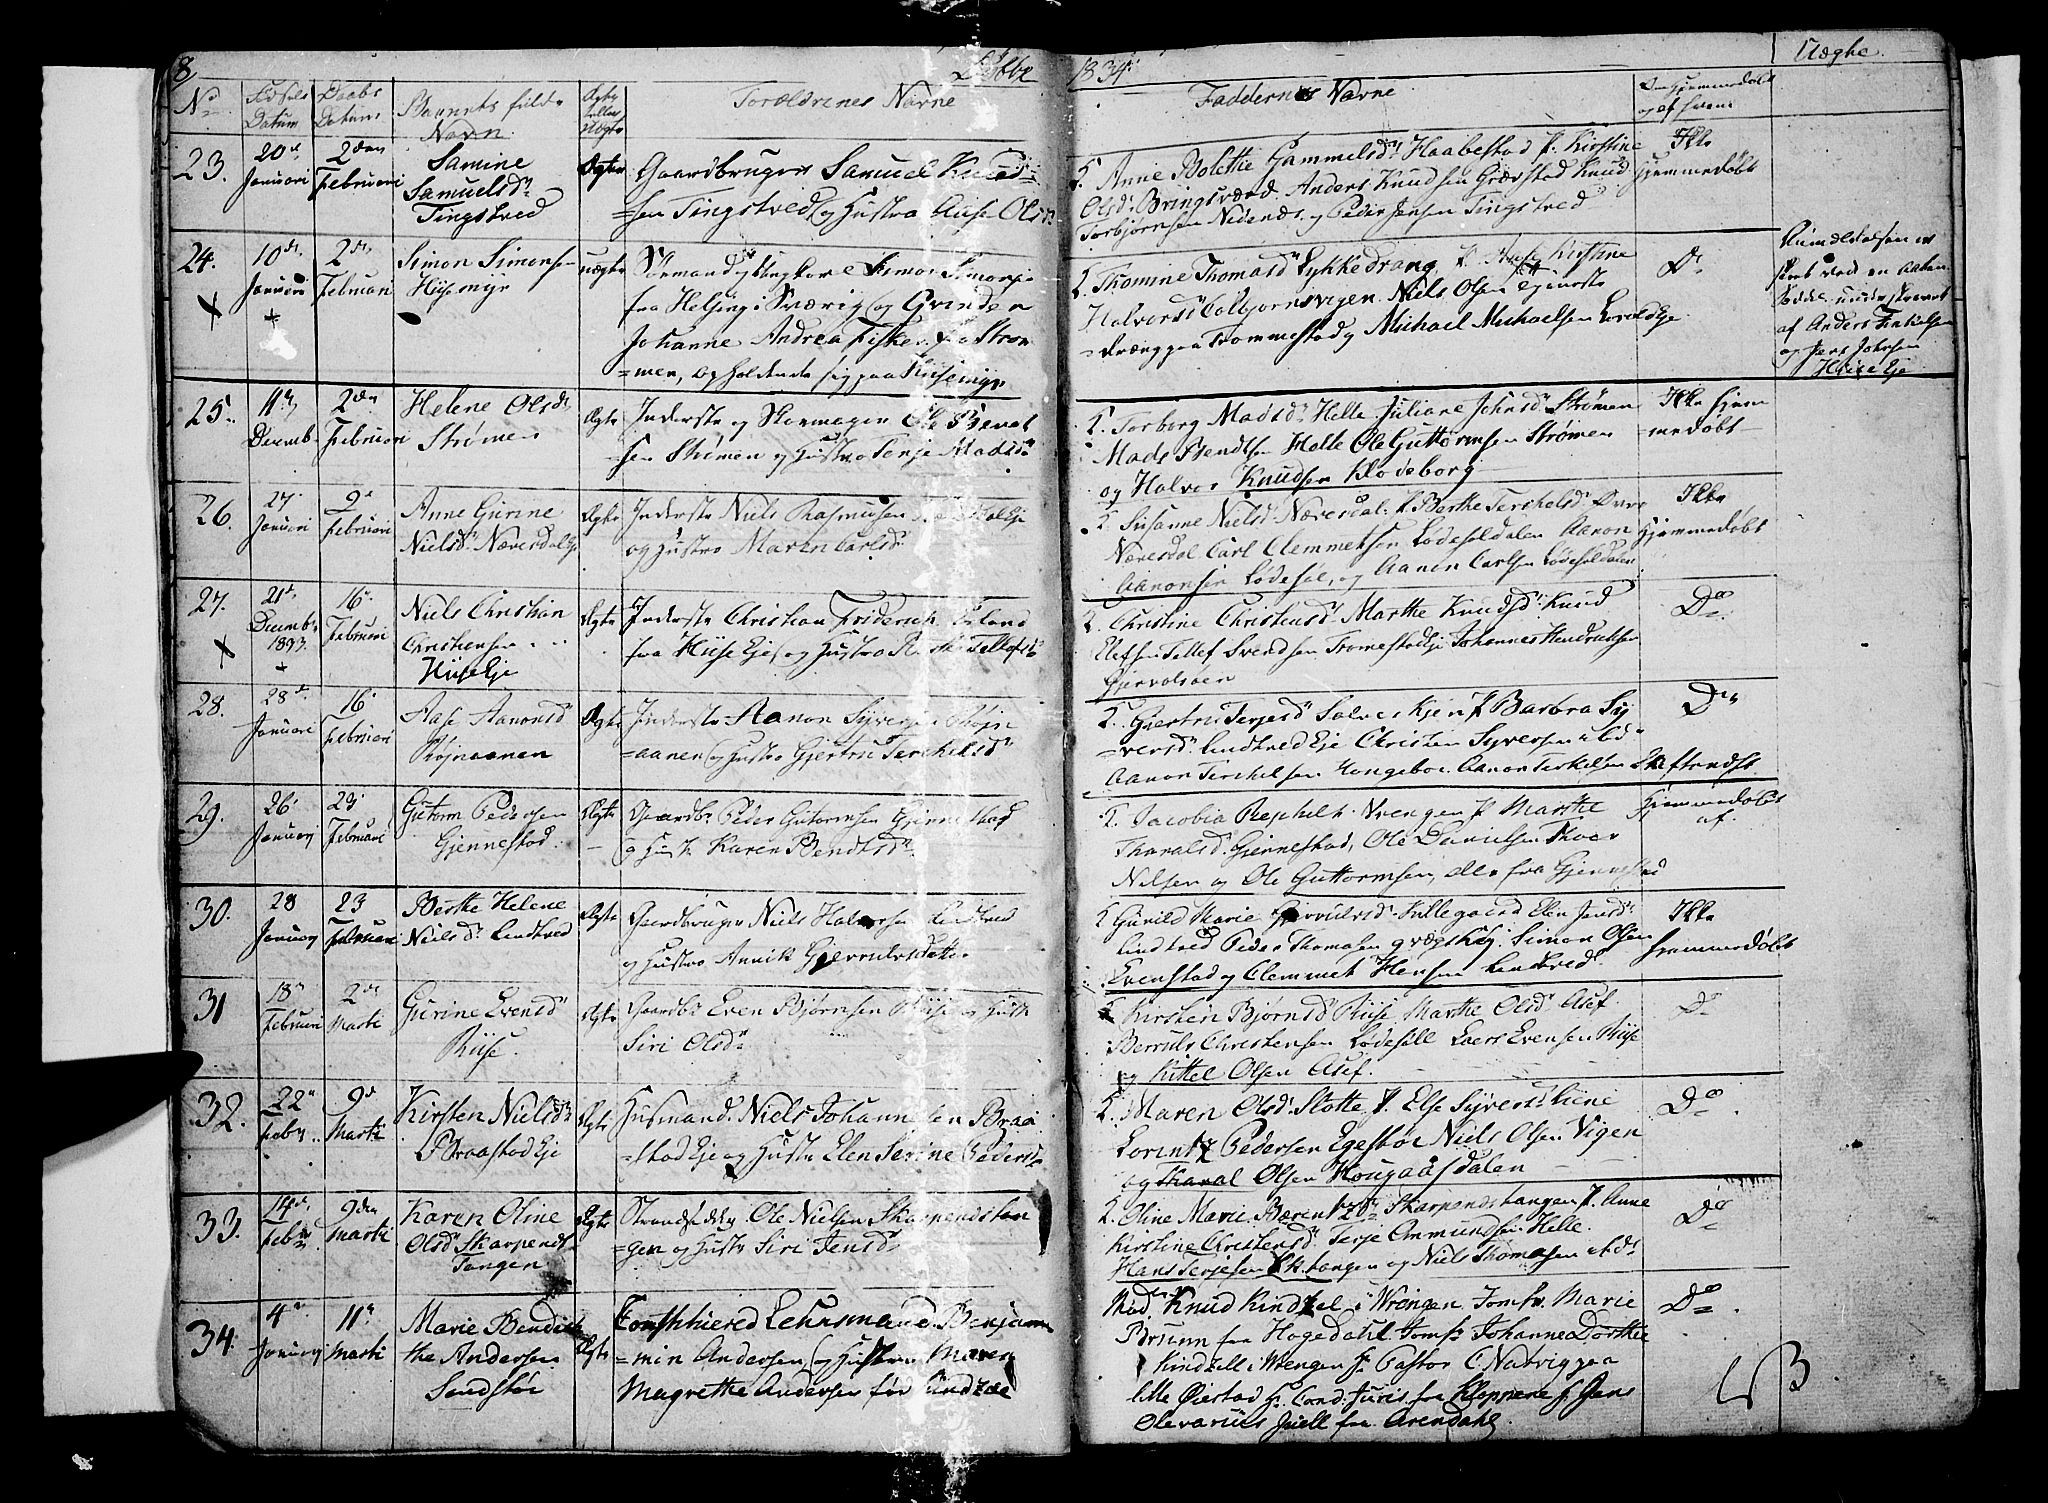 8 Døbte 1834
No Fødsels Datum Daabs Datum Barnets fulde Navn Ægte eller Uægte Forældrenes Navne Faddernes Navne Om hjemmedøbt og af hvem Uægte
23. 20de Januari 2den Februari Samine Samuelsdr Tingstved Ægte
Gaardbruger Samuel Knud=
=sen Tingstved og Hustro Aase Olsdr
F. Anne Bolethe Gammelsdr Haabestad P. Kirstine
Olsdr Bringsværd. Anders Knudsen Grævstad Knud
Torbjørnsen Nedenæs og Peder Jensen Tingstved
Ikke hjemmedøbt
24. 10de Januari 2den Februari Simon Simonsen Hüsemyr uægte
Sømand og Ungkarl Simon Simonsen
fra Helsing i Sverig og Qvinden
Johanne Andrea Fisker fra Strøm
=men, opholdende sig paa Hüsemyr
F. Thomine Thomasdr Lykkedrang Kirstine
Halvorsdr Colbjørnsvigen. Niels Olsen tjeneste
=dræng paa Trommestad og Michael Michaelsen
Do
Anmeldelsen er
skeet ved en
underskrevet
af Anders
og Jens Johnsen
Hüse Eje
25. 11te Decemb. 2den Februari Helene Olsdr Strømen Ægte
Inderste og Skomager Ole Bendt
=sen Strømen og Hustro Terje Madsdr
F. Torborg Madsdr Helle Juliane Johnsdr Strømen
Mads Bendtsen Helle Ole Guttormsen Strømen
og Halvor Knudsen Klodeborg
Ikke hjem
=medøbt
26. 27 Januari 9de Februari Anne Gurine Nielsdr Næresdal Eje Ægte
Inderste Niels Rasmusen
og Hustro Maren Carlsdr
F. Susanne Nielsdr Næresdal. P. Berthe Terchelsdr Øvre
Næresdal Carl Clemmetsen Lødesøldalen Aanon
Aanonsen Lødesøl, og Aanen Carlsen Lødesøldalen
Ikke hjemmedøbt
27. 21de Decemb. 1833. 16. Februari Niels Christian Christensen Hüse Eje Ægte
Inderste Christian Friderich
fra Hüse Eje og Hustro Tellefsdr
F. Christine Christensdr Marthe Knudsdr Knud
Elefsen Tellef Svendsen Tromestad Eje Johannes Hendrichsen
Gjervolsøen
Do
28. 28de Januari 16. Februari Aase Aanonsdr Røjnaanen Ægte
Inderste Aanon Syversen Røjn
=aanen og Hustro Gjertru Terchelsdr
F. Gjertru Terjesdr Salveskjen P. Barbra Sy
=versdr Lindtved Eje Christen Syversen ibd
Aanon Terchelsen Longeboe. Aanon Terkelsen
Do
29. 26. Januarj 23. Februari Gutorm Pedersen Gjennestad Ægte
Gaardbr. Peder Gutormsen Gjennestad
og Hust. Karen Bendtsdr
F. Jacobia Vrengen P. Marthe
Tharaldsdr Gjennestad, Ole Danielsen Thoer
Nilsen og Ole Guttormsen, alle fra Gjennestad
Hjemmedøbt af
30. 28 Januarj 23 Februari Berthe Helene Nielsdr Lindtved Ægte
Gaardbruger Niels Halvorsen Lindtved
og Hustro Annik Gjerrulvsdatter
F. Gunild Marie Gjerrulvsdr Elen Jensdr
Lindtved Peder Thomasen. Simon Olsen
Evenstad og Clemmet Hensen Lindtved
Ikke hjemmedøbt
31 18de Februari 2den Marti Gurine Evensdr Rüse. Ægte
Gaardb. Even Bjørnsen Rüse og Hust.
Siri Olsdr
F. Kirsten Bjørnsdr Rüse Marthe Olsdr Asef
Berruls Christensen Lødesøll Laers Evensen Rüse
og Kittel Olsen Asef.
Do
32. 22de Feby. 9de Marti Kirsten Nielsdr Braastad Eje Ægte
Husmand. Niels Johannesen Braa
=stad Eje og Hustr Elen Serine Pedersdr
F. Maren Olsdr Slotte P. Else Syversdr
Lorentz Pedersen Egestøe Niels Olsen Vigen
og Tharal Olsen Hougaasdalen
Do
33. 14de Feby. 9den Marti Karen Oline Olsdr Skarpends Tangen Ægte
Strandsidder Ole Nielsen Skarpendstan
=gen og Hustr Siri Jensdr
F. Oline Marie Barentzdr Skarpendstangen P. Anne
Kirstine Christensdr. Terje Ommundsen Helle
Hans Terjesen Sk.tangen og Niels Thomasen ibds
Do
34. 4de Januarj 11te Marti Marie Bendicthe Andersen Sandstøe Ægte
Constituered Lehnsmand Benja=
=min Andersen, og Hustro Maren
Magrethe Andersen fød
Mad. Knud Kindtzel i Wrengen Jomfr. Marie
Brunn fra Hogedahl Jomfr Johanne Dorthe
Kindzell i Wrengen Hr Pastor C. Nadvig paa
lille Øiestad Hr Cand. Juris fra Kloppene Hr Jens
Olevarius Juell fra Arendahl.
Do